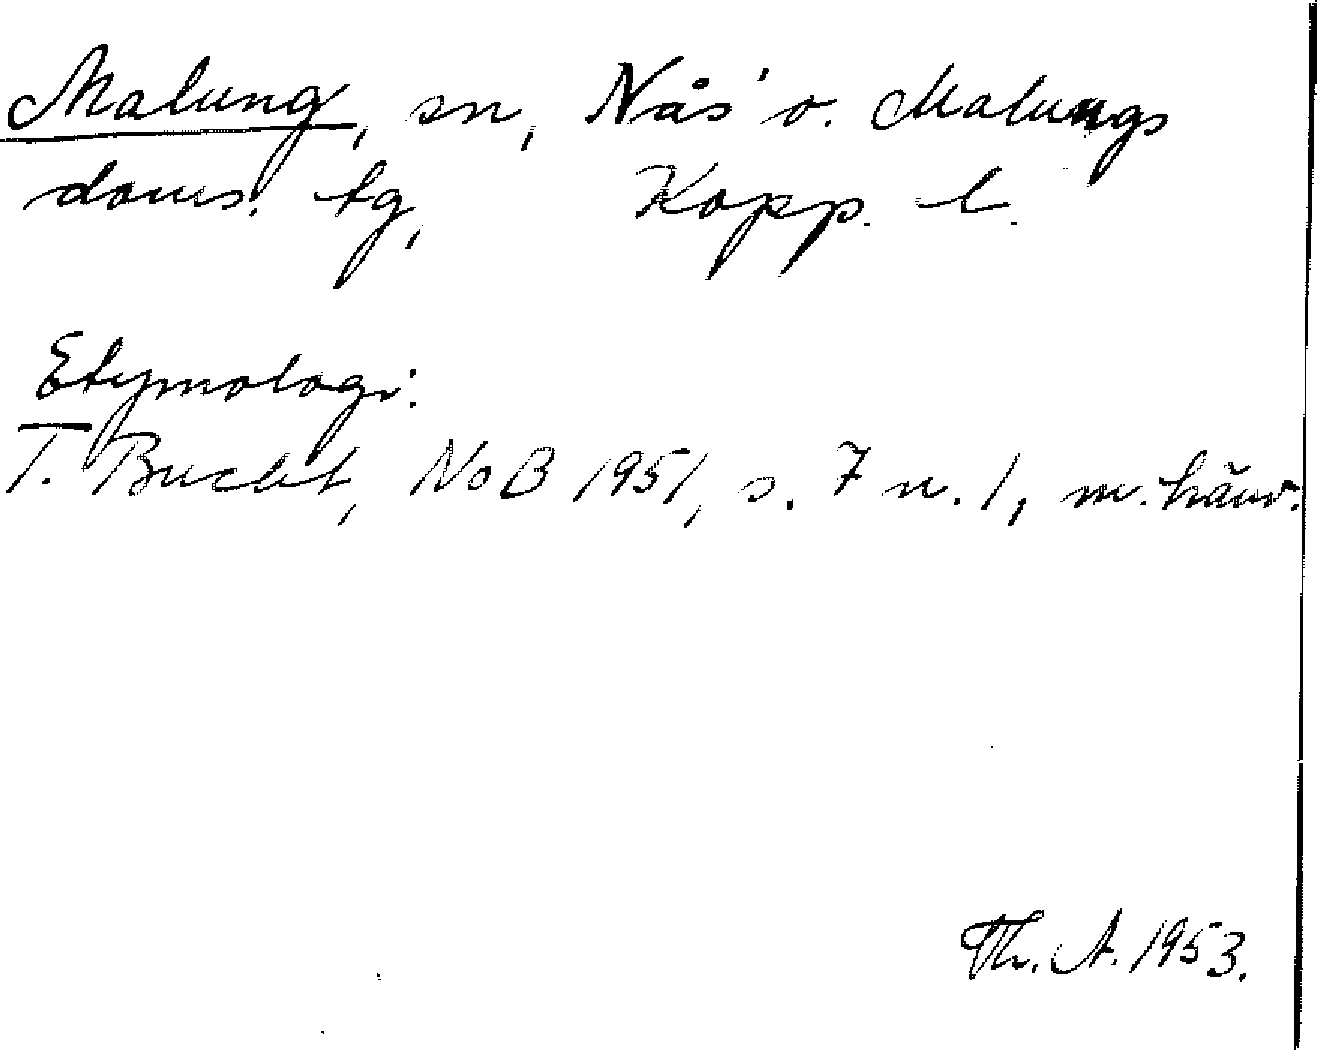 Malung, sn, Nås' o. Malungs
doms. tg, Kopp. l.
Etymologi:
T. Bucht, NoB 1951, s. 7 n. 1, m. hänv.
Th. A. 1953.